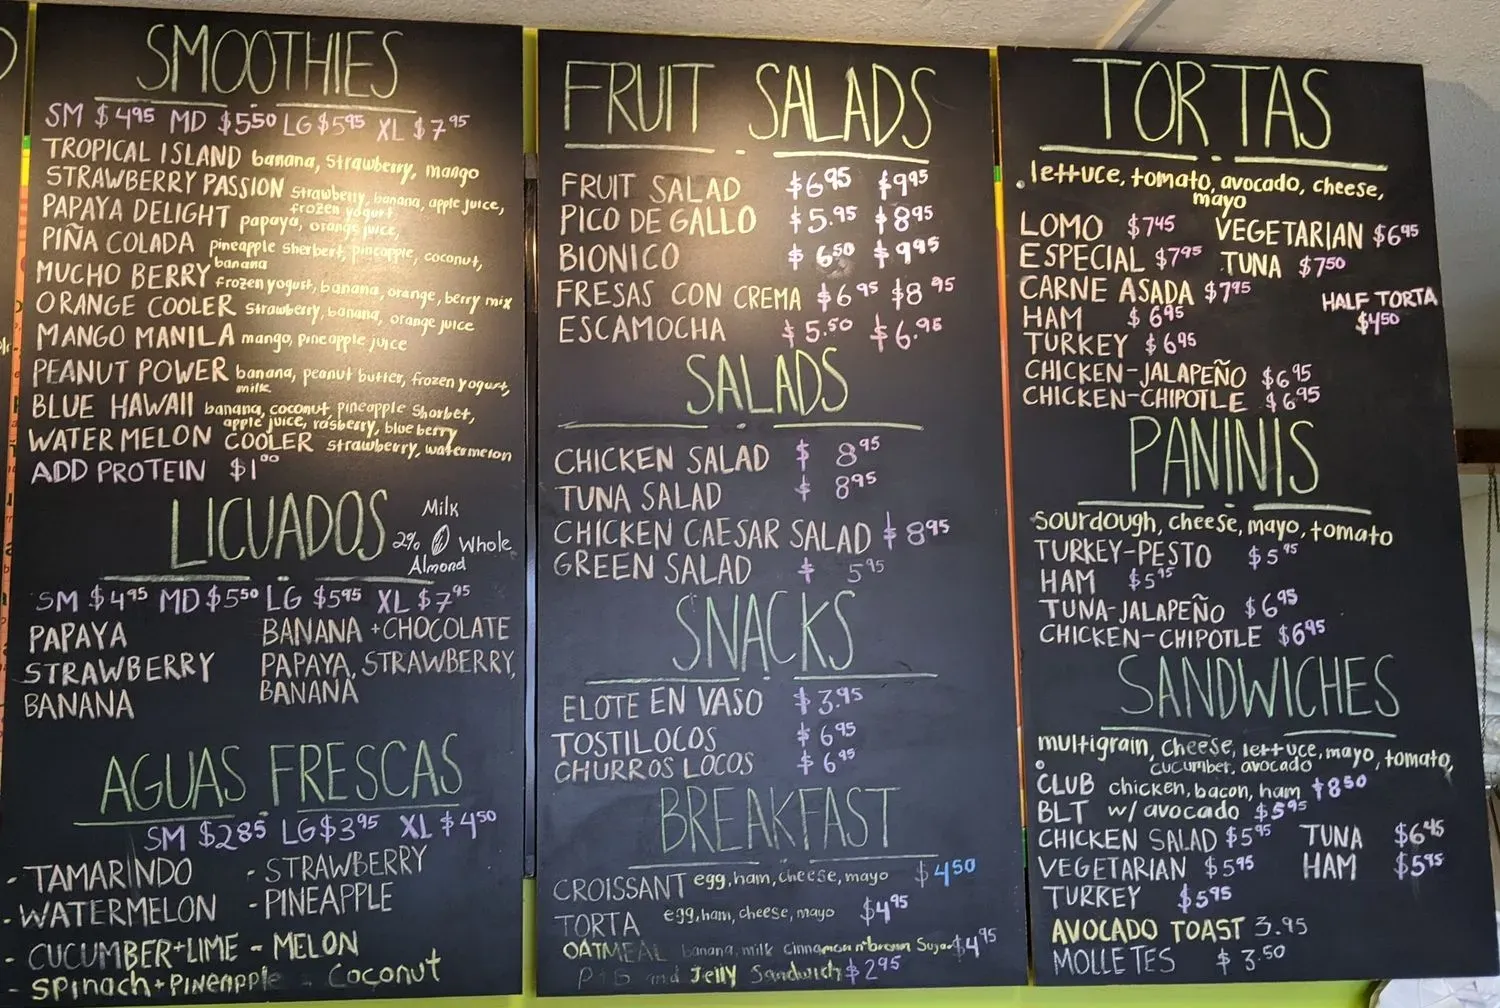 SMOOTHIES
SM $4.95 MD $5.50 LG $5.95 XL $7.95
TROPICAL ISLAND banana, Strawberry, mango
STRAWBERRY PASSION Strawberry, banana, apple juice,
frozen yogurt
PAPAYA DELIGHT papaya, orange juice,
PIÑA COLADA pineapple Sherbert, pineapple, coconut,
banana
MUCHO BERRY frozen yogurt, banana, orange, berry mix
ORANGE COOLER Strawberry, banana, orange juice
MANGO MANILA mango, pineapple juice
PEANUT POWER banana, peanut butter, frozen yogurt,
milk
BLUE HAWAII banana, coconut, pineapple Shorbet,
apple juice, rasberry, blue berry
WATERMELON COOLER strawberry, watermelon
ADD PROTEIN $1.00
LICUADOS
Milk
2% Whole
Almond
SM $4.95 MD $5.50 LG $5.95 XL $7.95
PAPAYA BANANA + CHOCOLATE
STRAWBERRY PAPAYA, STRAWBERRY,
BANANA BANANA
AGUAS FRESCAS
SM $2.85 LG $3.95 XL $4.50
- TAMARINDO - STRAWBERRY
- WATERMELON - PINEAPPLE
- CUCUMBER+LIME - MELON
- Spinach + Pineapple - Coconut
FRUIT SALADS
FRUIT SALAD $6.95 $9.95
PICO DE GALLO $5.95 $8.95
BIONICO $6.50 $9.95
FRESAS CON CREMA $6.95 $8.95
ESCAMOCHA $5.50 $6.95
SALADS
CHICKEN SALAD $8.95
TUNA SALAD $8.95
CHICKEN CAESAR SALAD $8.95
GREEN SALAD $5.95
SNACKS
ELOTE EN VASO $3.95
TOSTILOCOS $6.95
CHURROS LOCOS $6.95
BREAKFAST
CROISSANT egg, ham, cheese, mayo $4.50
TORTA egg, ham, cheese, mayo $4.95
OATMEAL banana, milk cinnamon n' brown Sugar $4.95
and Jelly Sandwich $2.95
TORTAS
lettuce, tomato, avocado, cheese,
mayo
LOMO $7.45 VEGETARIAN $6.95
ESPECIAL $7.95 TUNA $7.50
CARNE ASADA $7.95 HALF TORTA
HAM $6.95 $4.50
TURKEY $6.95
CHICKEN-JALAPEÑO $6.95
CHICKEN-CHIPOTLE $6.95
PANINIS
sourdough, cheese, mayo, tomato
TURKEY-PESTO $5.95
HAM $5.95
TUNA-JALAPEÑO $6.95
CHICKEN-CHIPOTLE $6.95
SANDWICHES
multigrain, cheese, lettuce, mayo, tomato,
cucumber, avocado
CLUB chicken, bacon, ham $8.50
BLT w/ avocado $5.95
CHICKEN SALAD $5.95 TUNA $6.45
VEGETARIAN $5.95 HAM $5.95
TURKEY $5.95
AVOCADO TOAST 3.95
MOLLETES $3.50